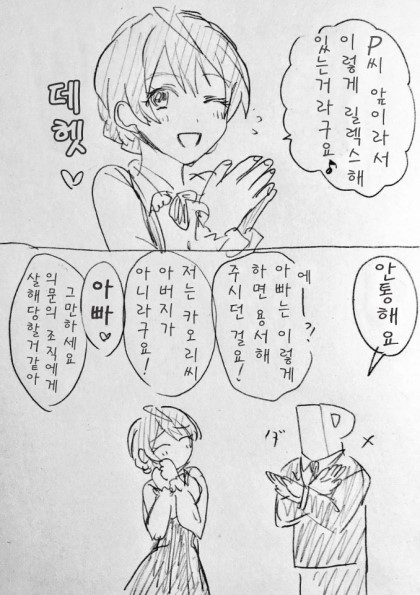 P씨 앞이라서
이렇게 릴렉스해
있는거라구요♪
데헷
♡
안통해요
에ー?!
아빠는 이렇게
하면 용서해
주시던걸요!
저는 카오리씨
아버지가
아니라구요!
아빠♡
그만하세요
의문의 조직에게
살해당할거같아
P